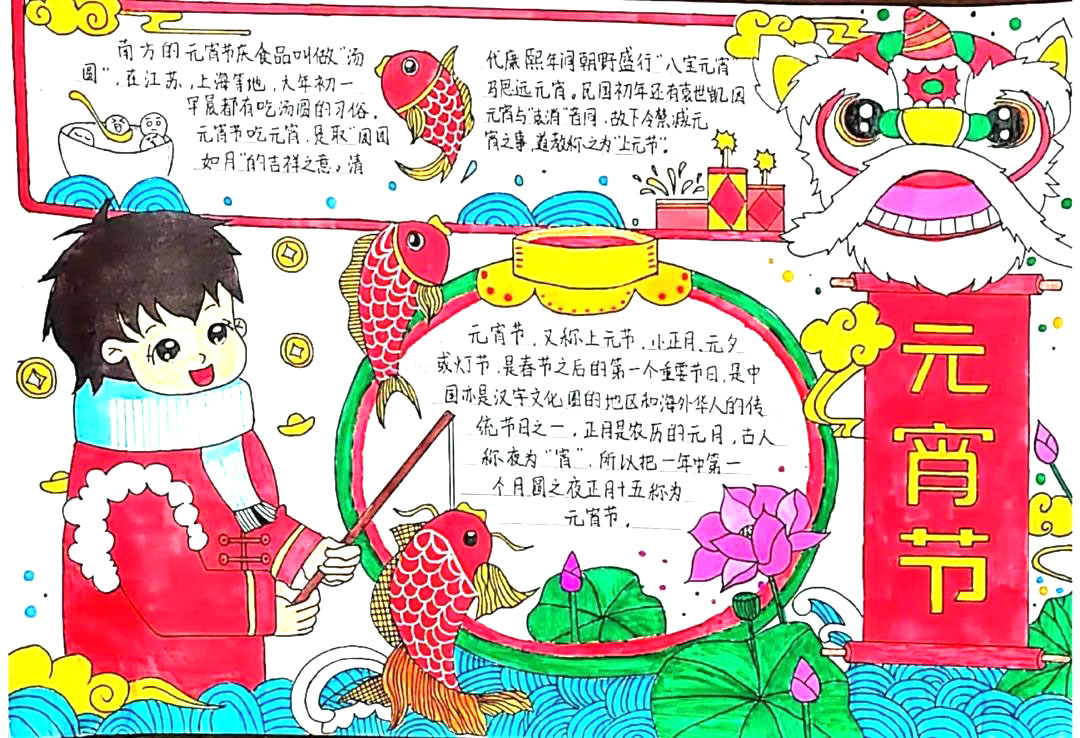 南方的元宵节庆食品叫做"汤
圆",在江苏,上海等地,大年初一
早晨都有吃汤圆的习俗,
元宵节吃元宵,是取"团团
如月"的吉祥之意。清
代康熙年间朝野盛行"八宝元宵
马思远元宵。民国初年还有袁世凯因
元宵与"袁消"音同,故下令禁,减元
宵之事,道教称之为"上元节"。
元宵节,又称上元节,小正月、元夕
或灯节,是春节之后的第一个重要节日,是中
国亦是汉字文化圈的地区和海外华人的传
统节日之一,正月是农历的元月,古人
称夜为"宵",所以把一年中第一
个月圆之夜正月十五称为
元宵节。
元宵节